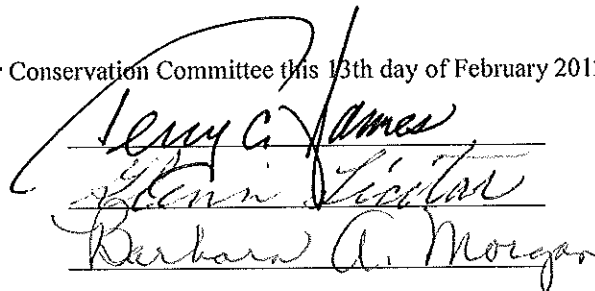 Conservation Committee this 13th day of February 201
Terry C. James
Barbara A. Morgan